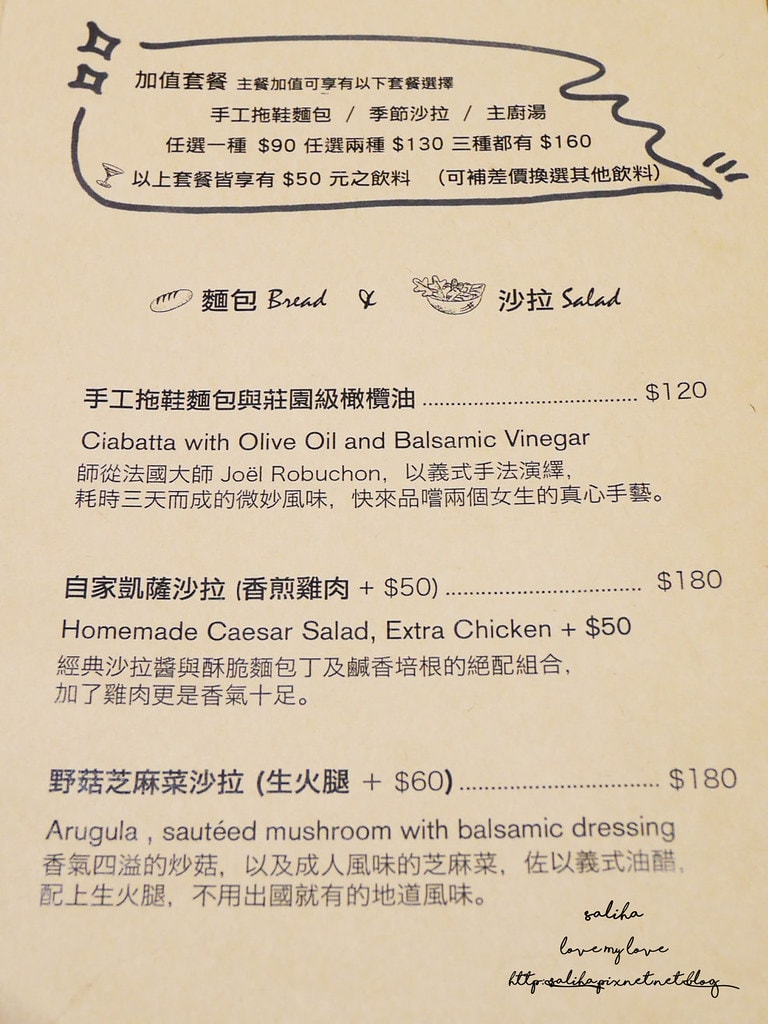 加值套餐 主餐加值可享有以下套餐選擇
手工拖鞋麵包 / 季節沙拉 / 主廚湯
任選一種 $90 任選兩種 $130 三種都有 $160
以上套餐皆享有 $50 元之飲料 (可補差價換選其他飲料)
麵包 Bread & 沙拉 Salad
手工拖鞋麵包與莊園級橄欖油 ........................................ $120
Ciabatta with Olive Oil and Balsamic Vinegar
師從法國大師 Joël Robuchon，以義式手法演繹，
耗時三天而成的微妙風味，快來品嚐兩個女生的真心手藝。
自家凱薩沙拉 (香煎雞肉 + $50) .................................... $180
Homemade Caesar Salad, Extra Chicken + $50
經典沙拉醬與酥脆麵包丁及鹹香培根的絕配組合，
加了雞肉更是香氣十足。
野菇芝麻菜沙拉 (生火腿 + $60) .................................... $180
Arugula , sautéed mushroom with balsamic dressing
香氣四溢的炒菇，以及成人風味的芝麻菜，佐以義式油醋，
配上生火腿，不用出國就有的地道風味。
saliha
love my love
http:saliha.pixnet.net.blog